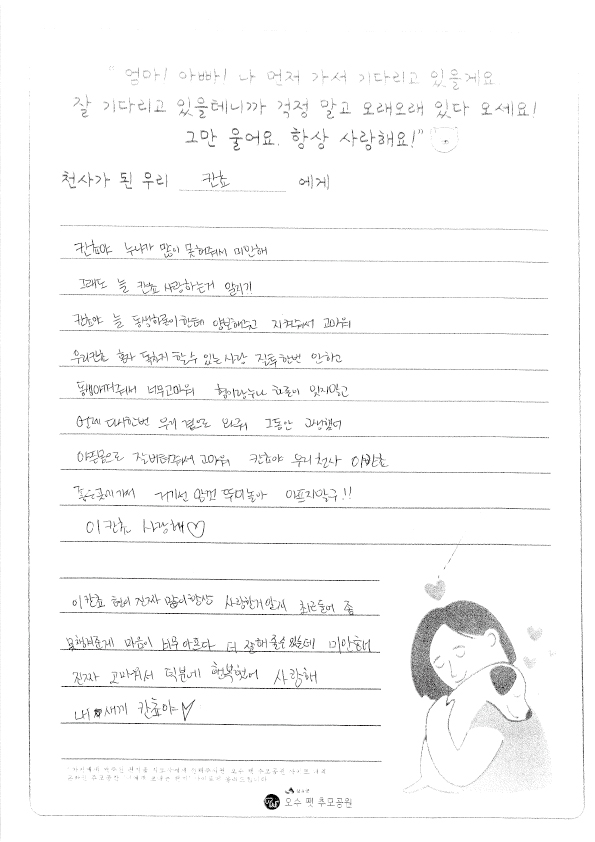 " 엄마! 아빠! 나 먼저 가서 기다리고 있을게요
잘 기다리고 있을테니까 걱정 말고 오래오래 있다 오세요!
그만 울어요. 항상 사랑해요!"
천사가 된 우리 칸쵸 에게
칸쵸야 누나가 많이 못해줘서 미안해
그래도 늘 칸쵸 사랑하는거 알지?!
칸쵸야 늘 동생 한테 양보해주고 지켜줘서 고마워
우리칸쵸 혼자 독차지 할수 있는 사랑 질투한번 안하고
너무고마워 형이랑누나 잊지않고
언제 다시한번 우리 곁으로 와줘 그동안 고생했어
아픈몸으로 잘버텨줘서 고마워 칸쵸야 우리천사 이칸쵸
좋은곳에가서 거기선 맘껏 뛰어놀아 아프지말구!!
이칸쵸 사랑해♡
이칸쵸 형이 진짜 많이항상 사랑한거알지 최근들어 좀
못챙겨준게 마음이 너무 아프다 더 잘해줄수있는데 미안해
진짜 고마워서 덕분에 행복했어 사랑해
내 새끼 칸쵸야♡
오수 펫 추모공원